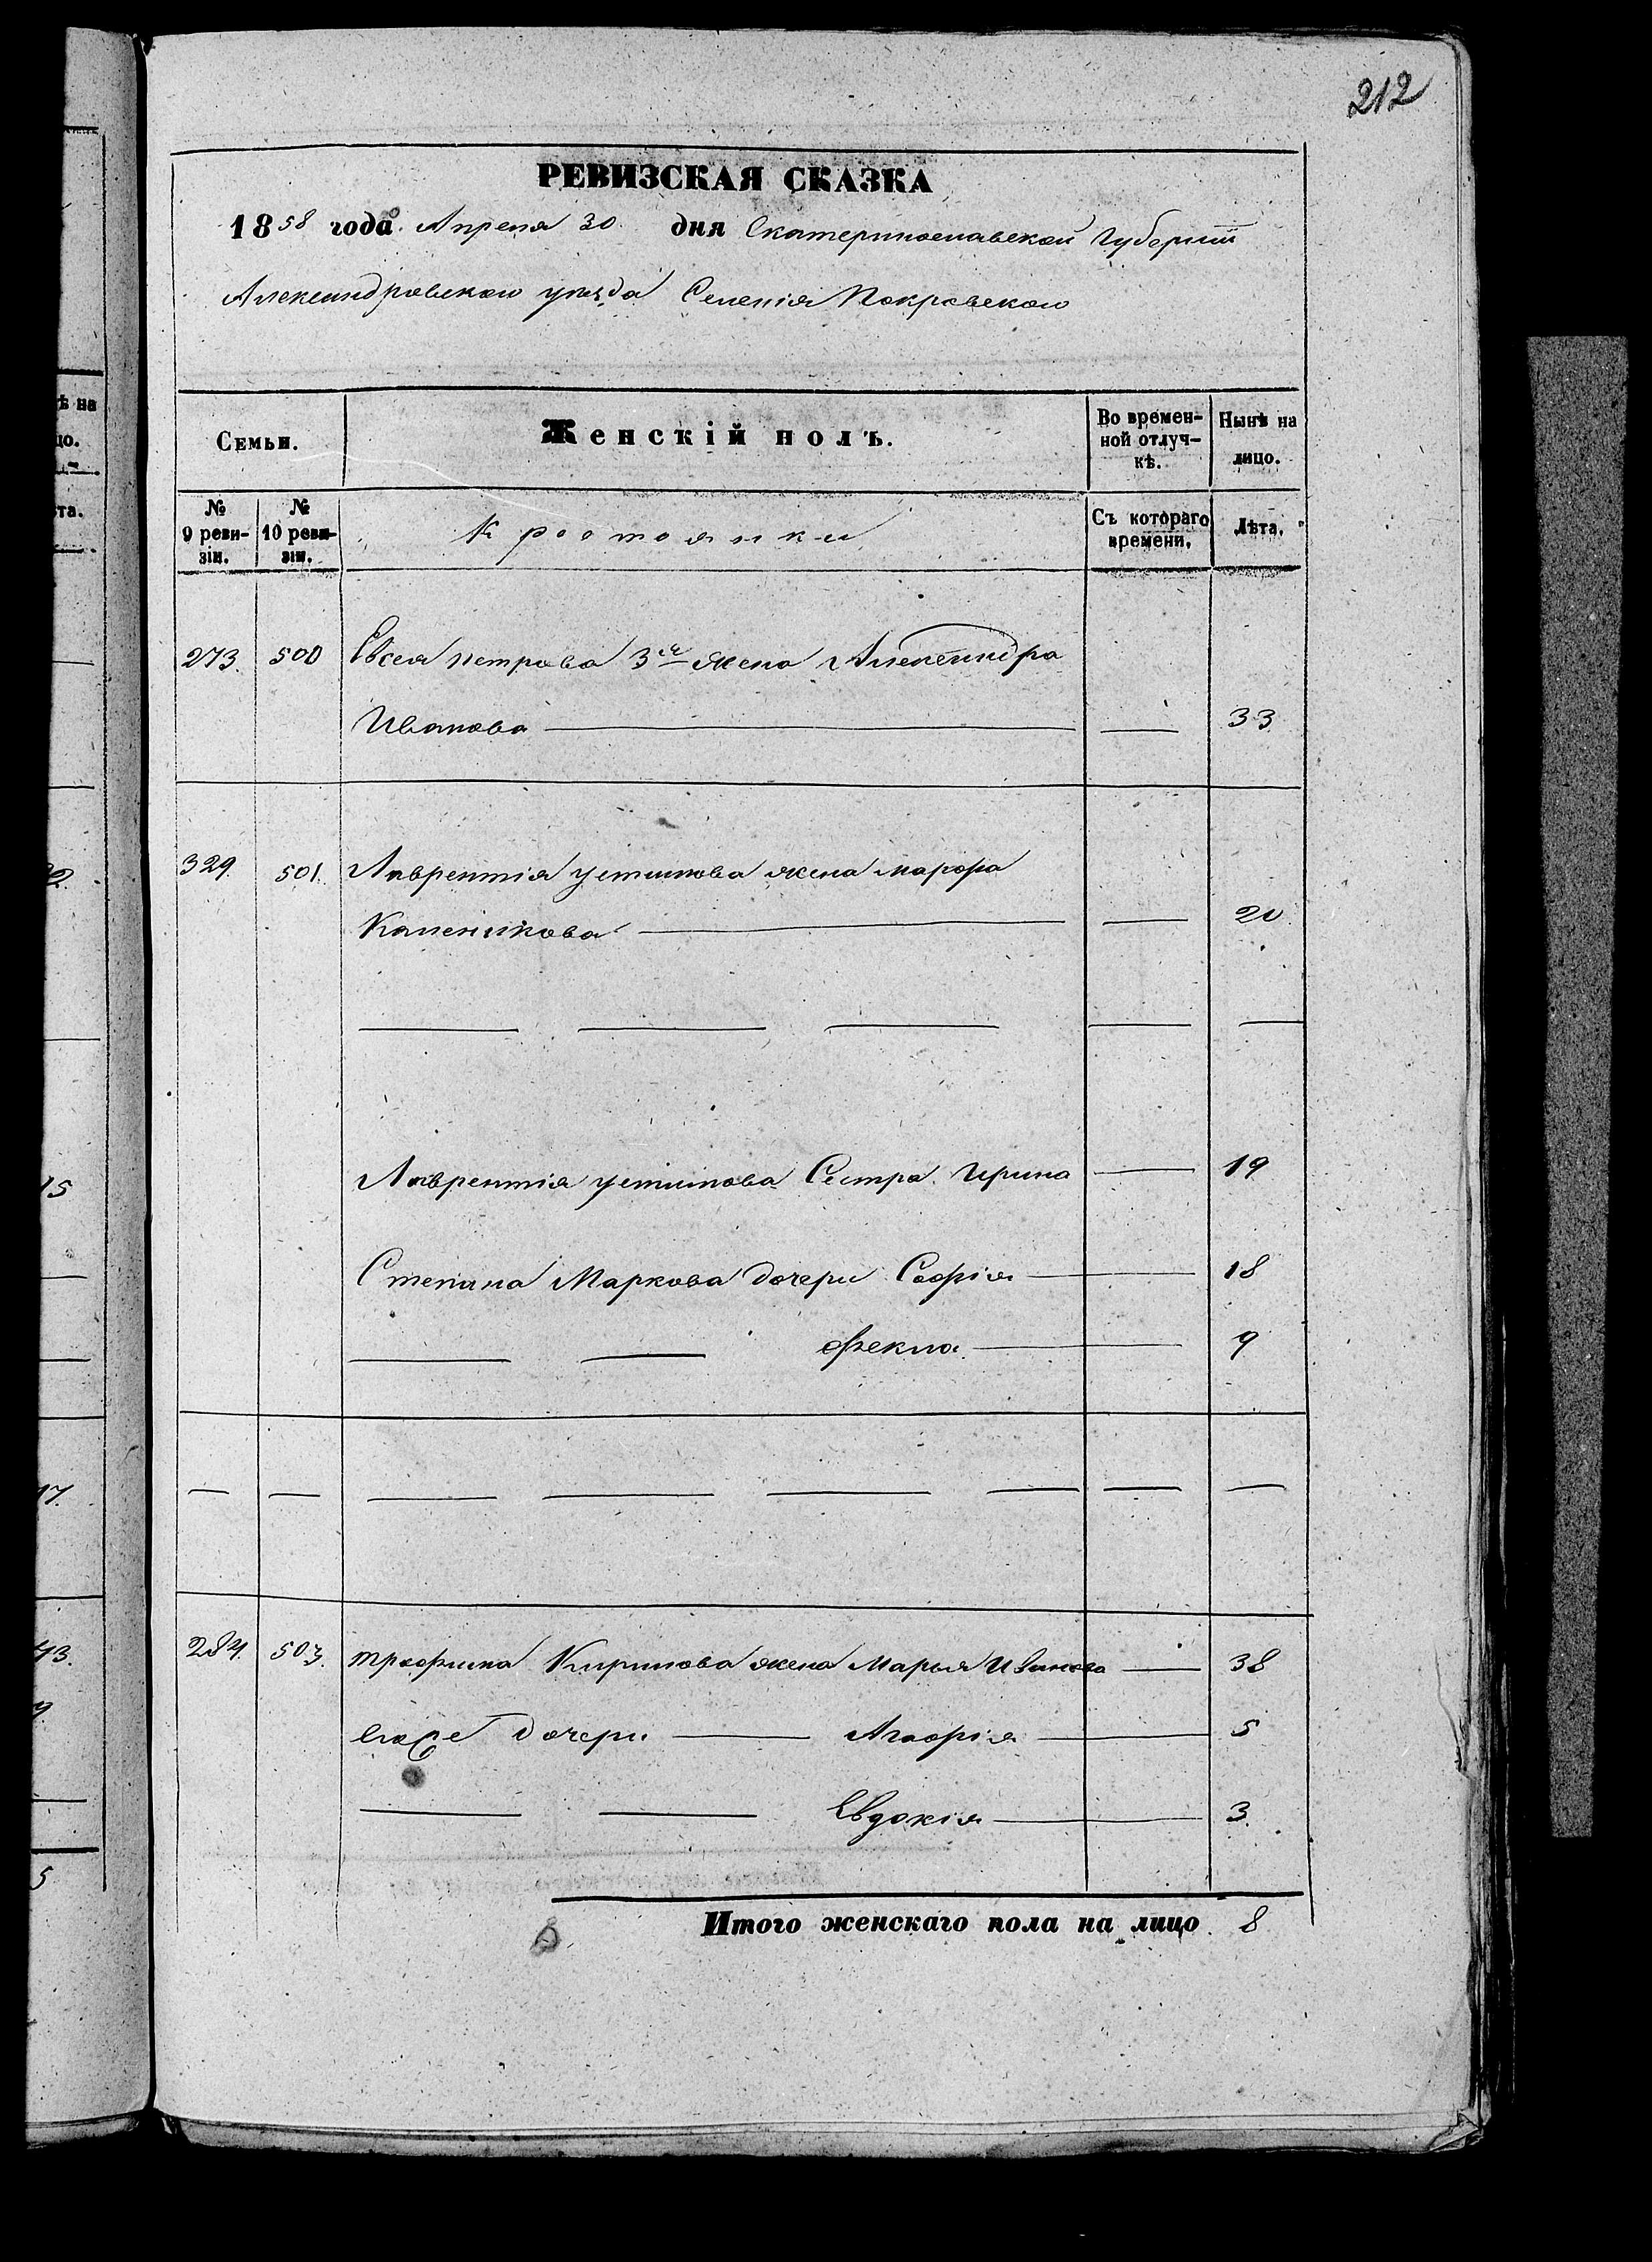 212
РЕВИЗСКАЯ СКАЗКА
1858 года Апреля 30 дня Екатеринославской Губерніи
Александровского уѣзда Селенія Покровского
Семьи.
Женскій полъ.
Во времен-
ной отлуч-
кѣ.
Нынѣ на
лицо.
№
9 реви-
зіи.
№
10 реви-
зіи.
Крестьянки
Съ котораго
времени.
Лѣта.
273. 500 Евсея Петрова 3ея жена Александра
Иванова — — 33
329. 501. Лаврентія Устимова жена марфа
— — 20
— — — — —
Лаврентія Устимова Сестра Ирина — 19
Степана Маркова дочери Софія — 18
— — Фекла — 9
— — — — — — — —
284. 503. трофима Кирилова жена Марья Иванова — 38
его же дочери — Агафія — 5
— — Евдокія — 3.
Итого женскаго пола на лицо 8
ѣ на
цо.
та.
15
17.
43.
9
5